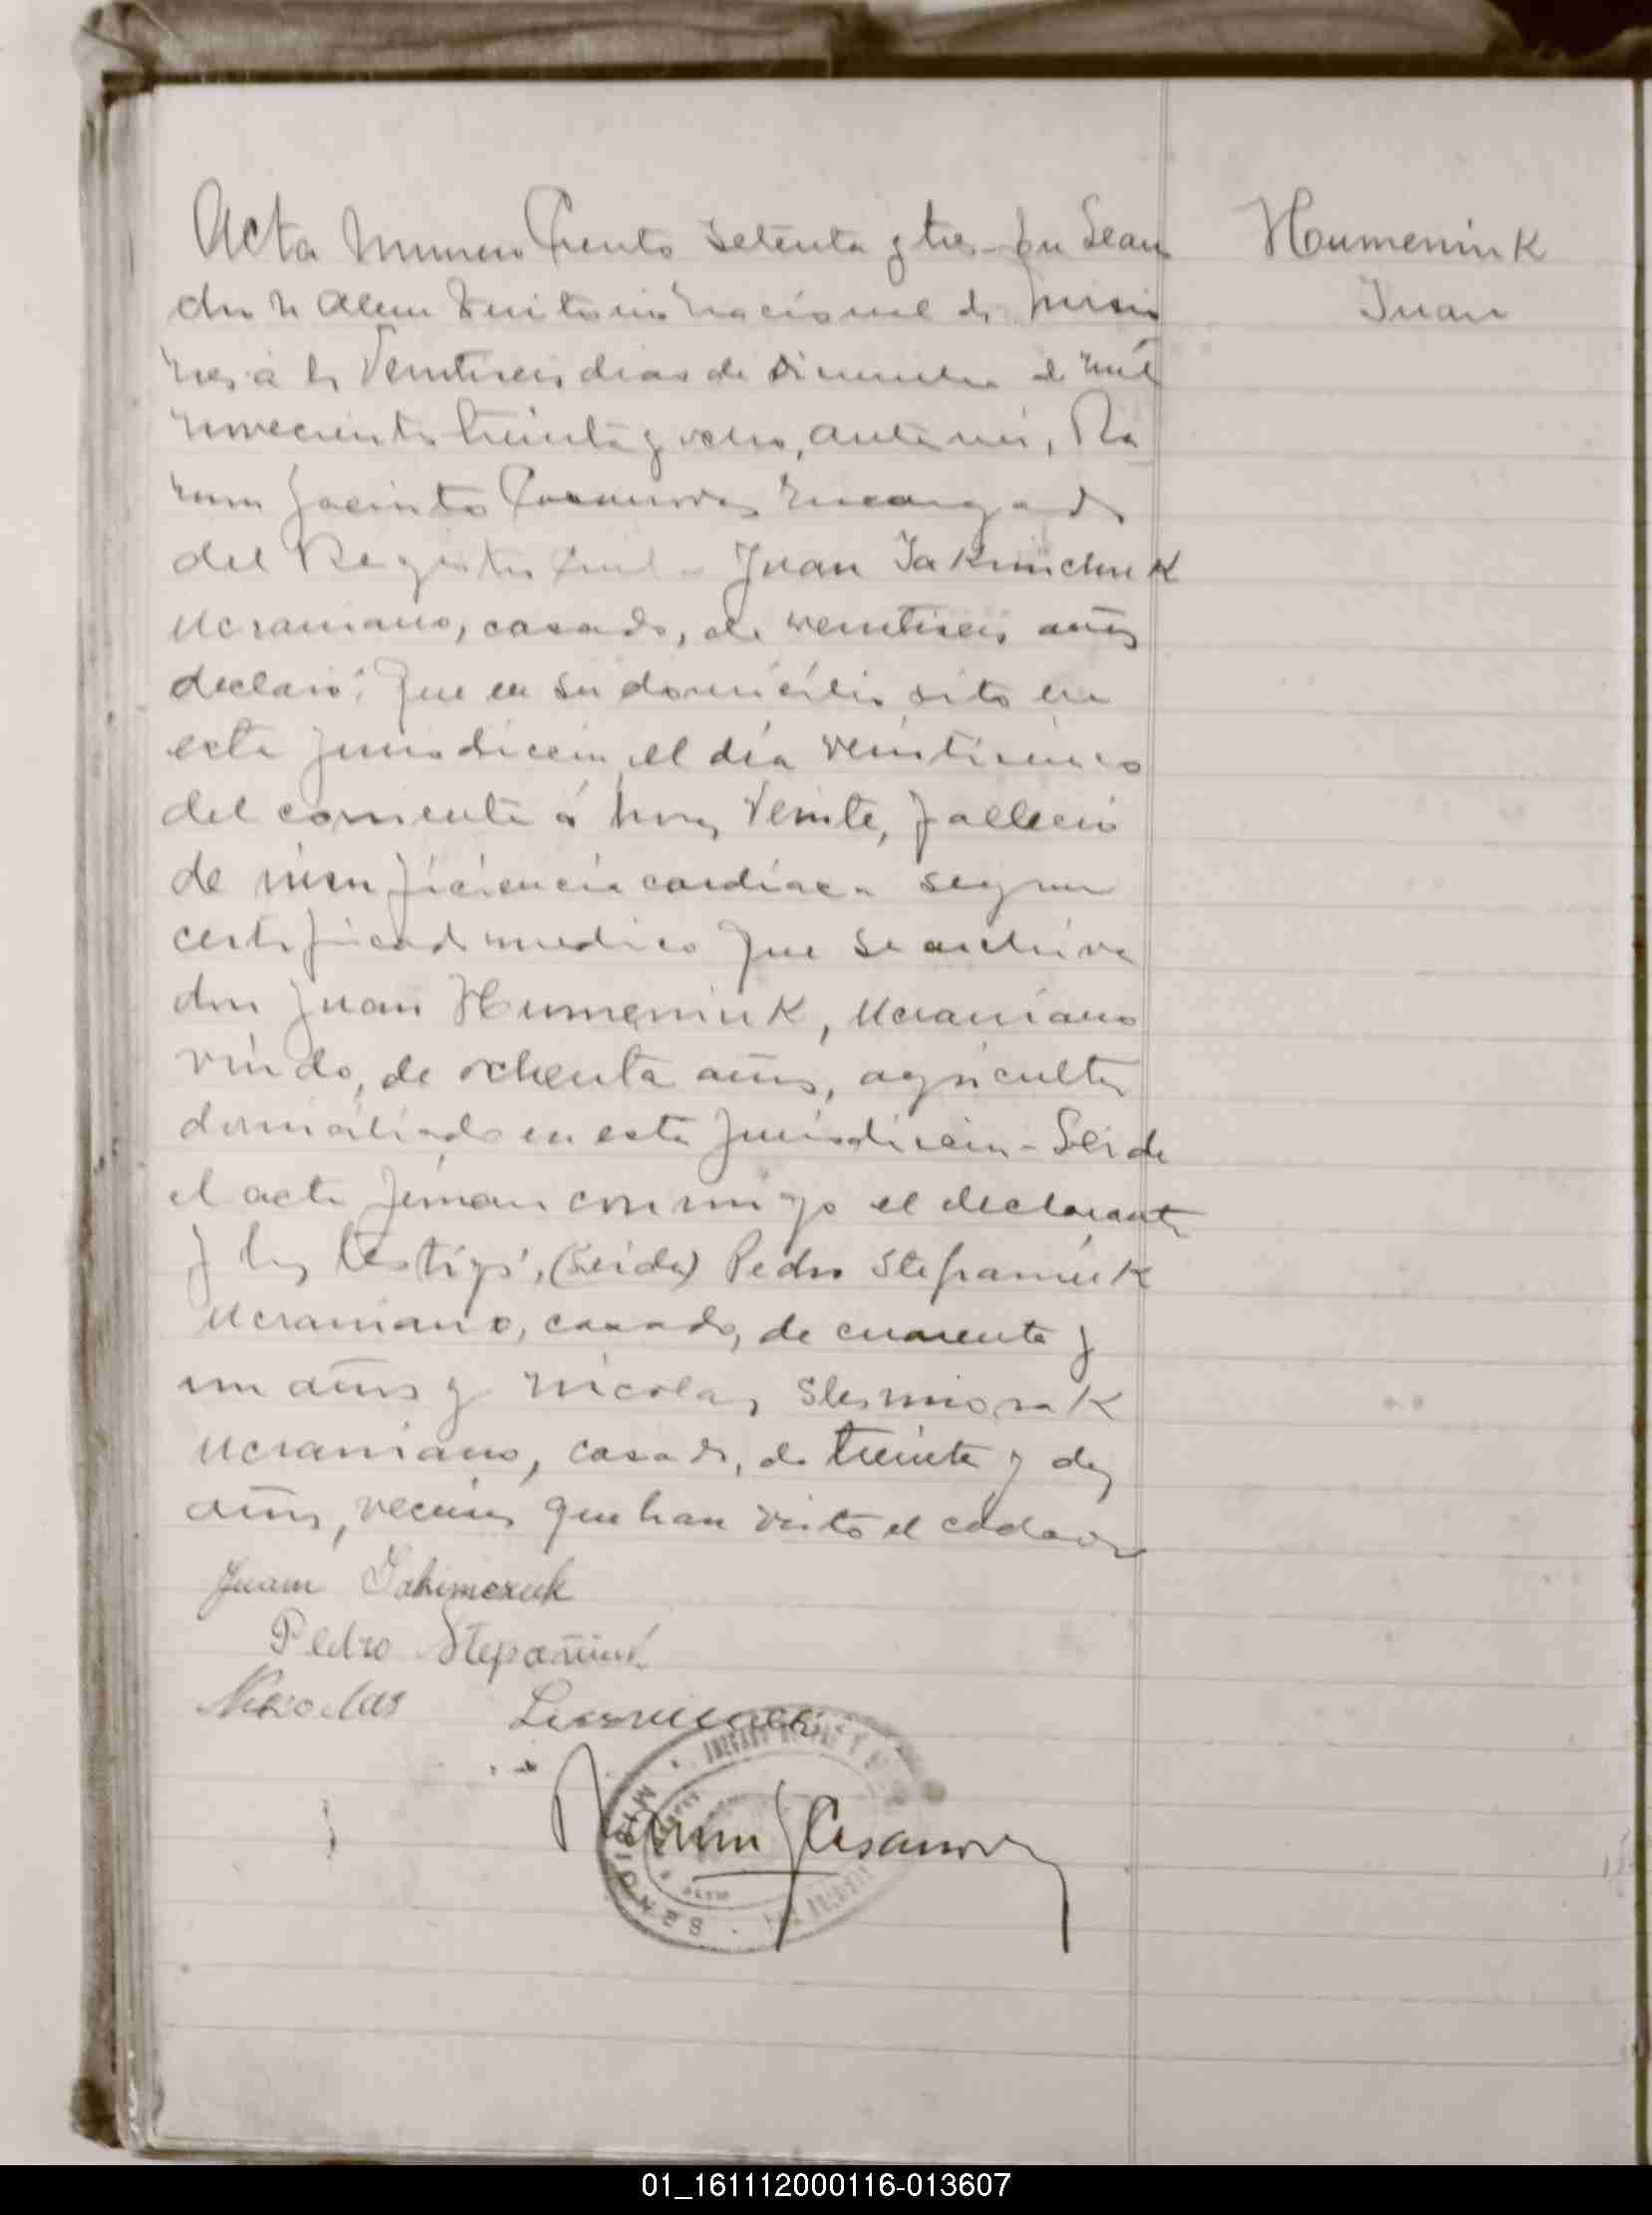 Acta Numero Ciento setenta y tres - En Lean
dro N. Alem Territorio Nacional de Misio
nes, a los Veintiseis dias de Diciembre de mil
novecientos treinta y ocho, ante mi, Ra
mon Jacinto Casanova Encargado
del Registro Civil - Juan Jakimchuk
Ucraniano, casado, de veintiseis años
declaró: Que en su domicilio sito en
esta jurisdiccion, el día veinticinco
del corriente á horas veinte, fallecio
de insuficiencia cardiaca segun
certificado medico que se archiva
don Juan Humeniuk, Ucraniano
viudo, de ochenta años, agricultor
domiciliado en esta jurisdiccion - Leida
el acta firman conmigo el declarante
y los testigos, (Leida) Pedro Stefaniuk
Ucraniano, casado, de cuarenta y
un años y Nicolas
Ucraniano, casado, de treinta y dos
años, vecinos que han visto el cadaver
Humeniuk
Juan
Juan Jakimczuk
Pedro
Nikolas
Ramon J Casanova
MISIONES
01_161112000116-013607